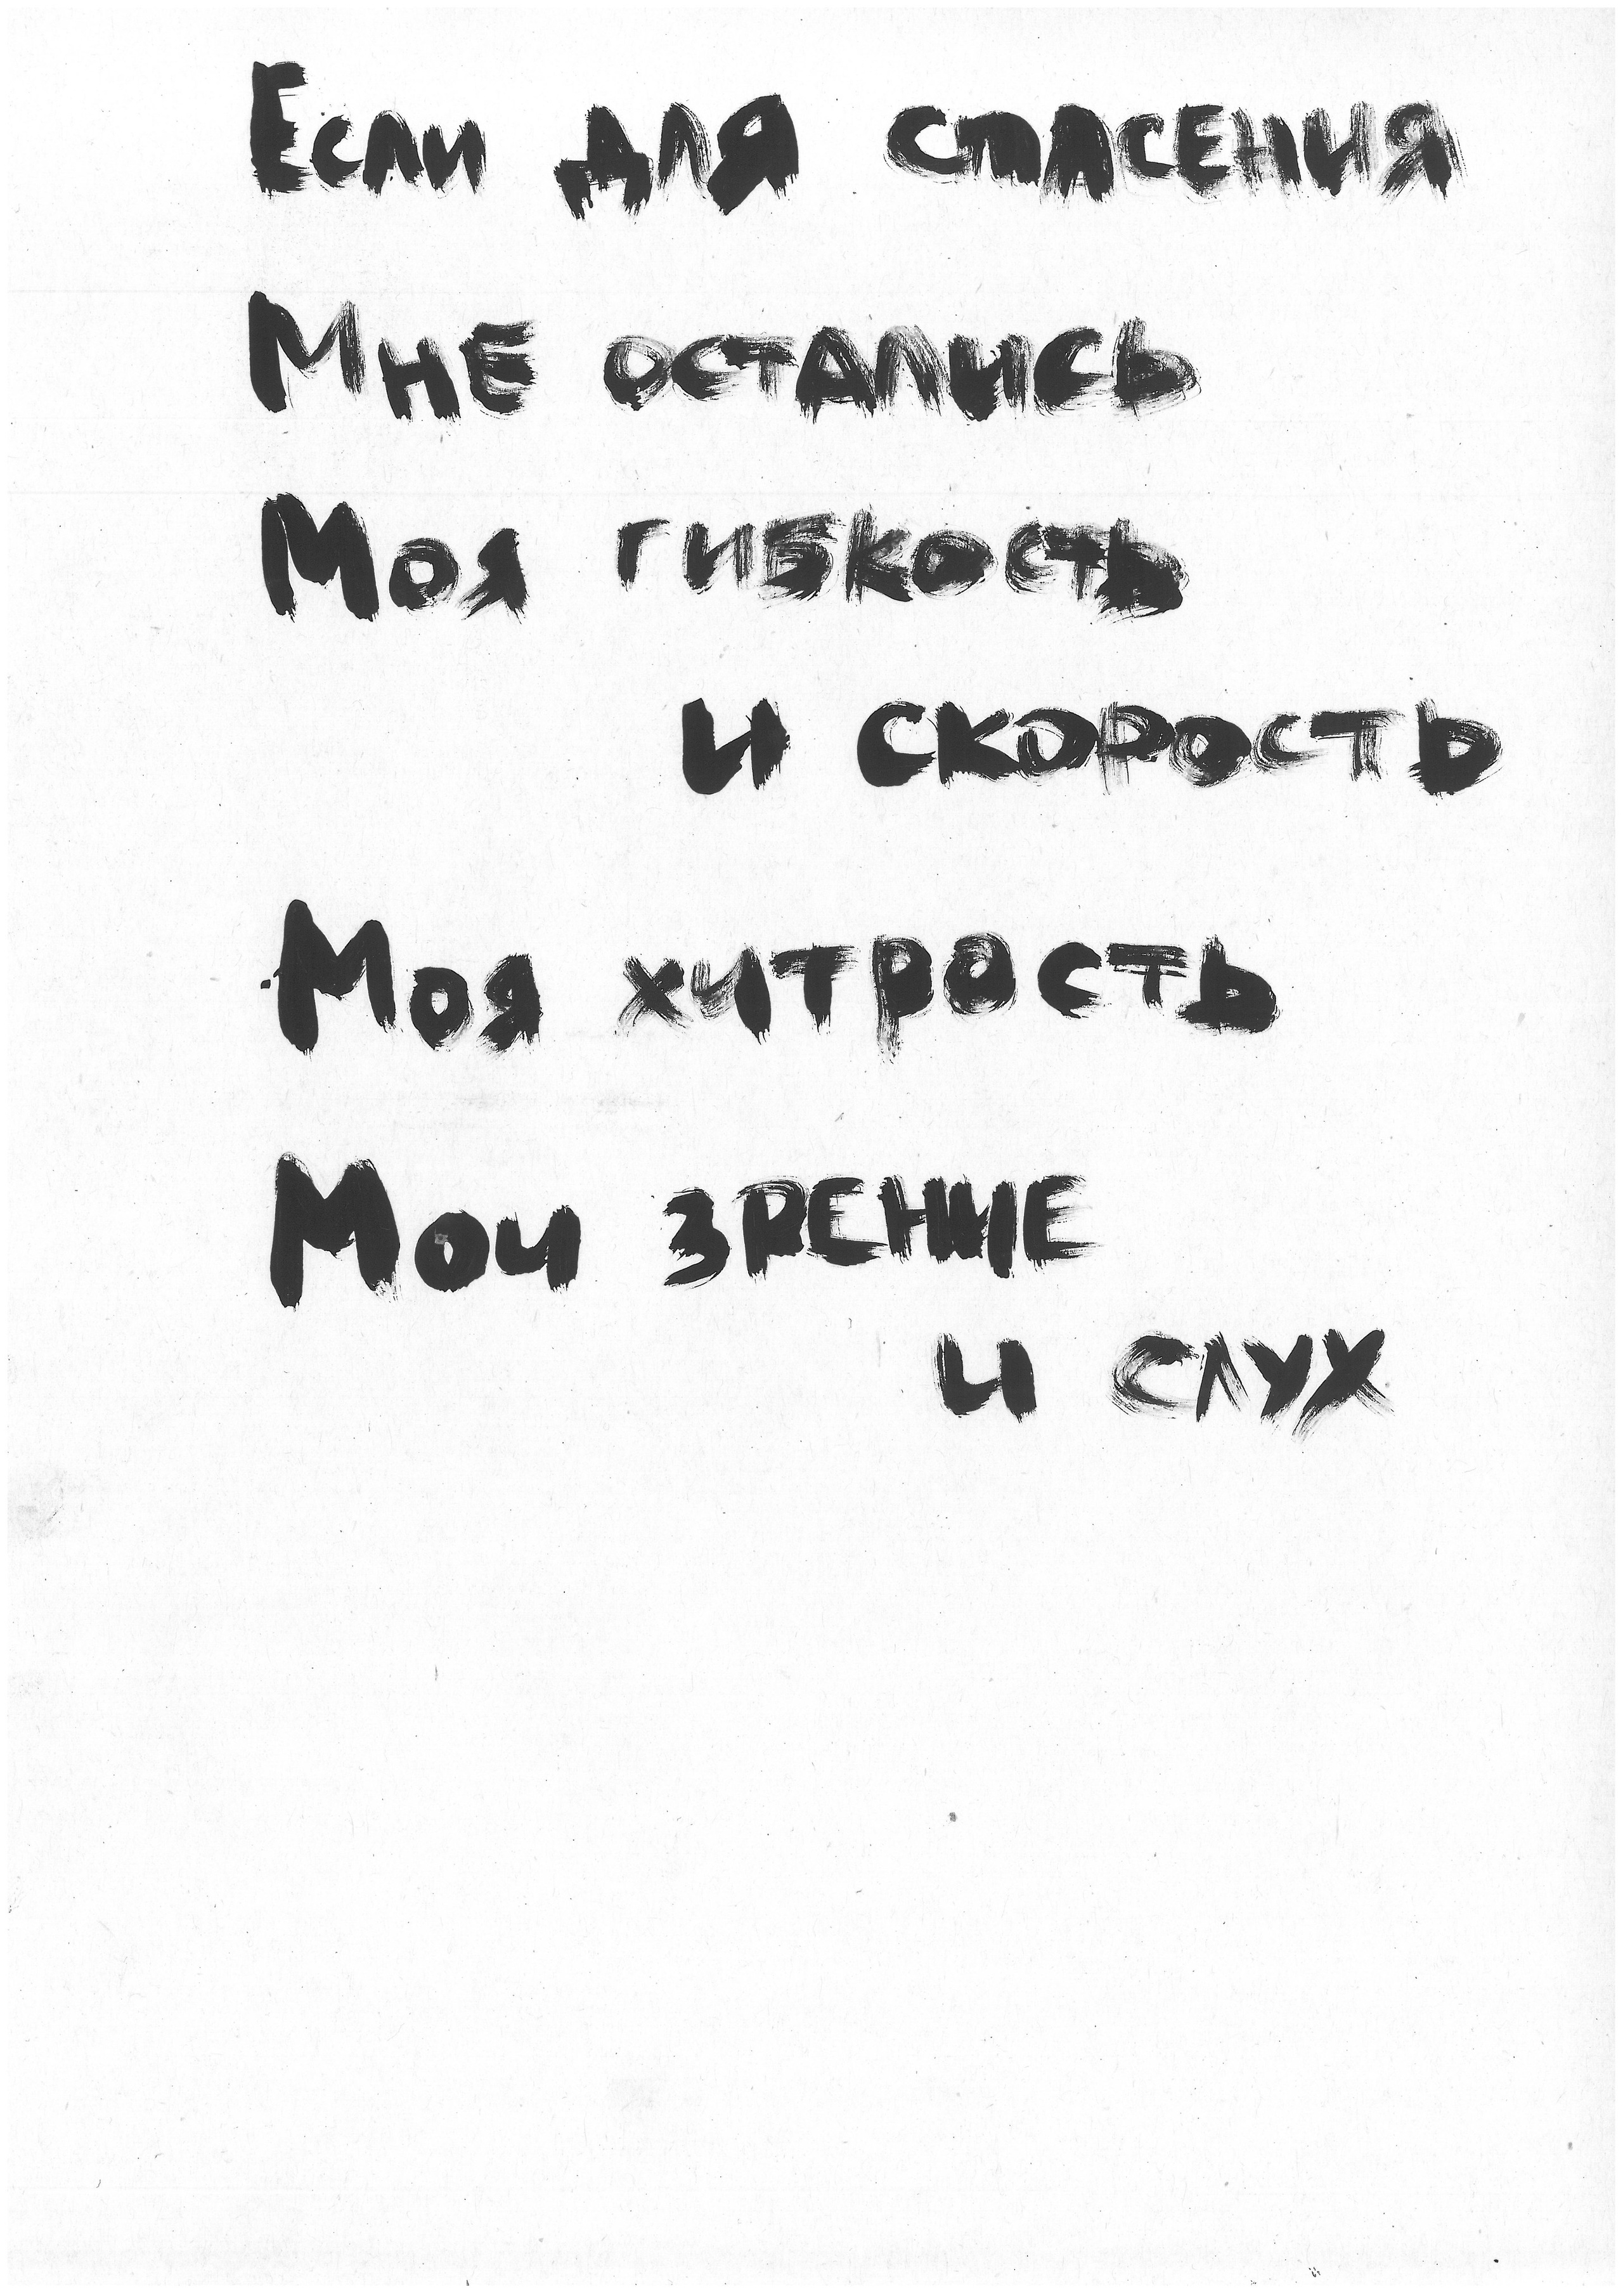 Если для спасения
Мне остались
Моя гибкость
и скорость
Моя хитрость
Мои зрение
и слух